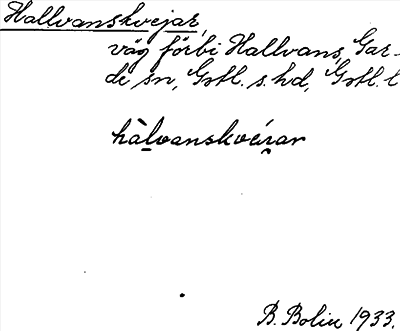 Hallvanskvejar,
väg förbi Hallvans, Gar-
de sn, Gotl. s. hd, Gotl. l
hàlvanskvéi̯ar
B. Bolin 1933.